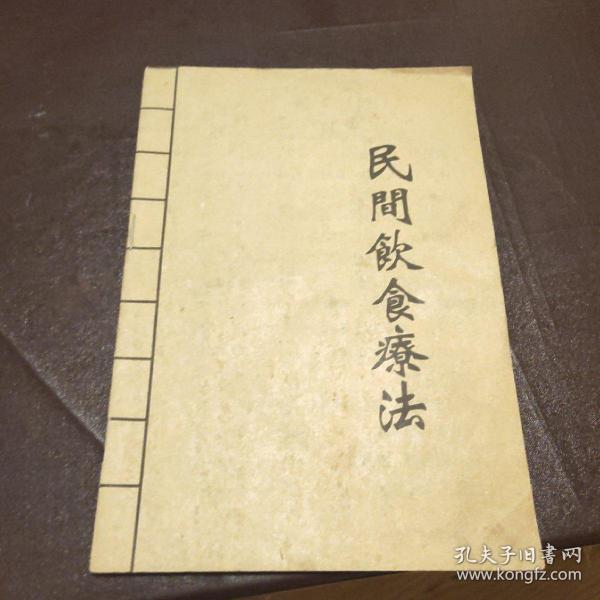 民間飲食療法
孔夫子旧書网
www.kongfz.com